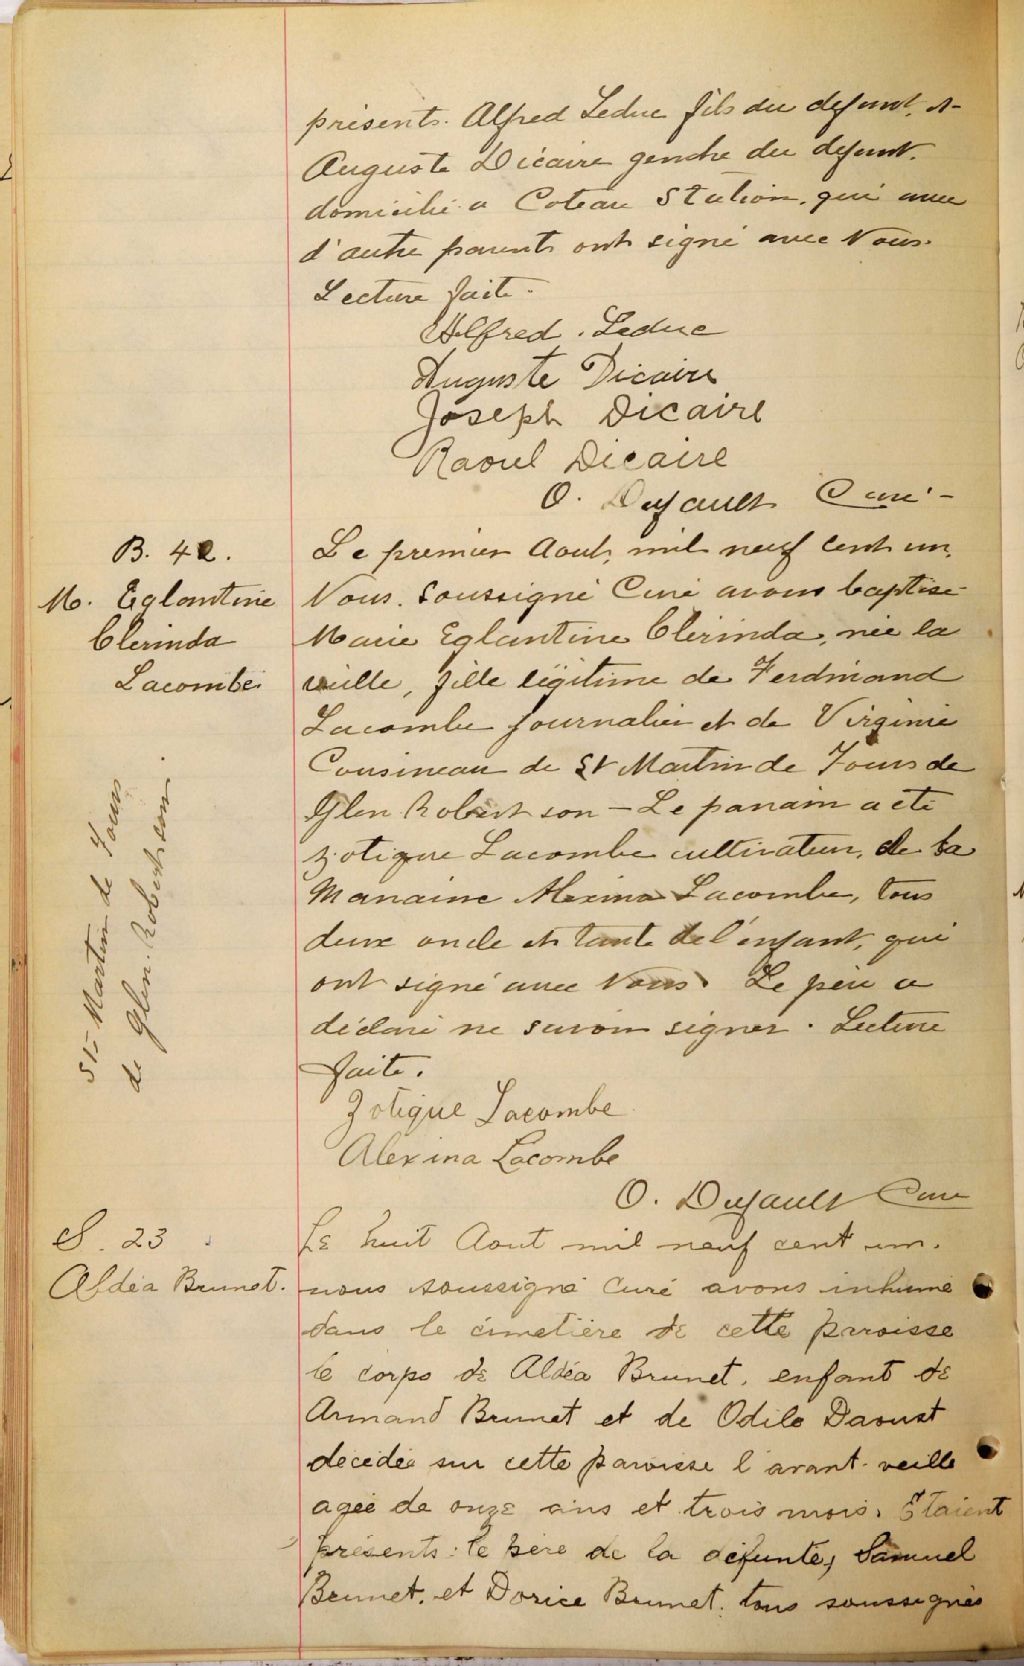 présents. Alfred Leduc fils du defunt, et
Auguste Dicaire gendre du defunt.
domicilié a Coteau Station, qui avec
d'autre parents ont signé avec Nous.
Lecture faite.
Alfred. Leduc
Auguste Dicaire
Joseph Dicaire
Raoul Dicaire
O. Dufault Curé
B. 42.
M. Eglantine
Clerinda
Lacombe
St Martin de Tours
de Glen. Robertson.
Le premier Aout, mil neuf cent un,
Nous. Soussigné Curé avons baptisé
Marie Eglantine Clerinda, née la
veille, fille légitime de Ferdinand
Lacombe journalier et de Virginie
Cousineau de St Martin de Tours de
Glen Robertson — Le parrain a été
Zotique Lacombe cultivateur, de la
Marraine Alexina Lacombe, tous
deux oncle et tante de l'enfant, qui
ont signé avec Nous. Le père a
déclaré ne savoir signer. Lecture
faite.
Zotique Lacombe
Alexina Lacombe
O. Dufault Curé
S. 23
Aldéa Brunet.
Le huit Aout mil neuf cent un.
nous soussigné Curé avons inhumé
dans le cimetière de cette paroisse
le corps de Aldéa Brunet, enfant de
Armand Brunet et de Odile Daoust
décédée sur cette paroisse l'avant-veille
agée de onze ans et trois mois. Etaient
présents: le père de la défunte, Samuel
Brunet. et Dorice Brunet. tous soussignés